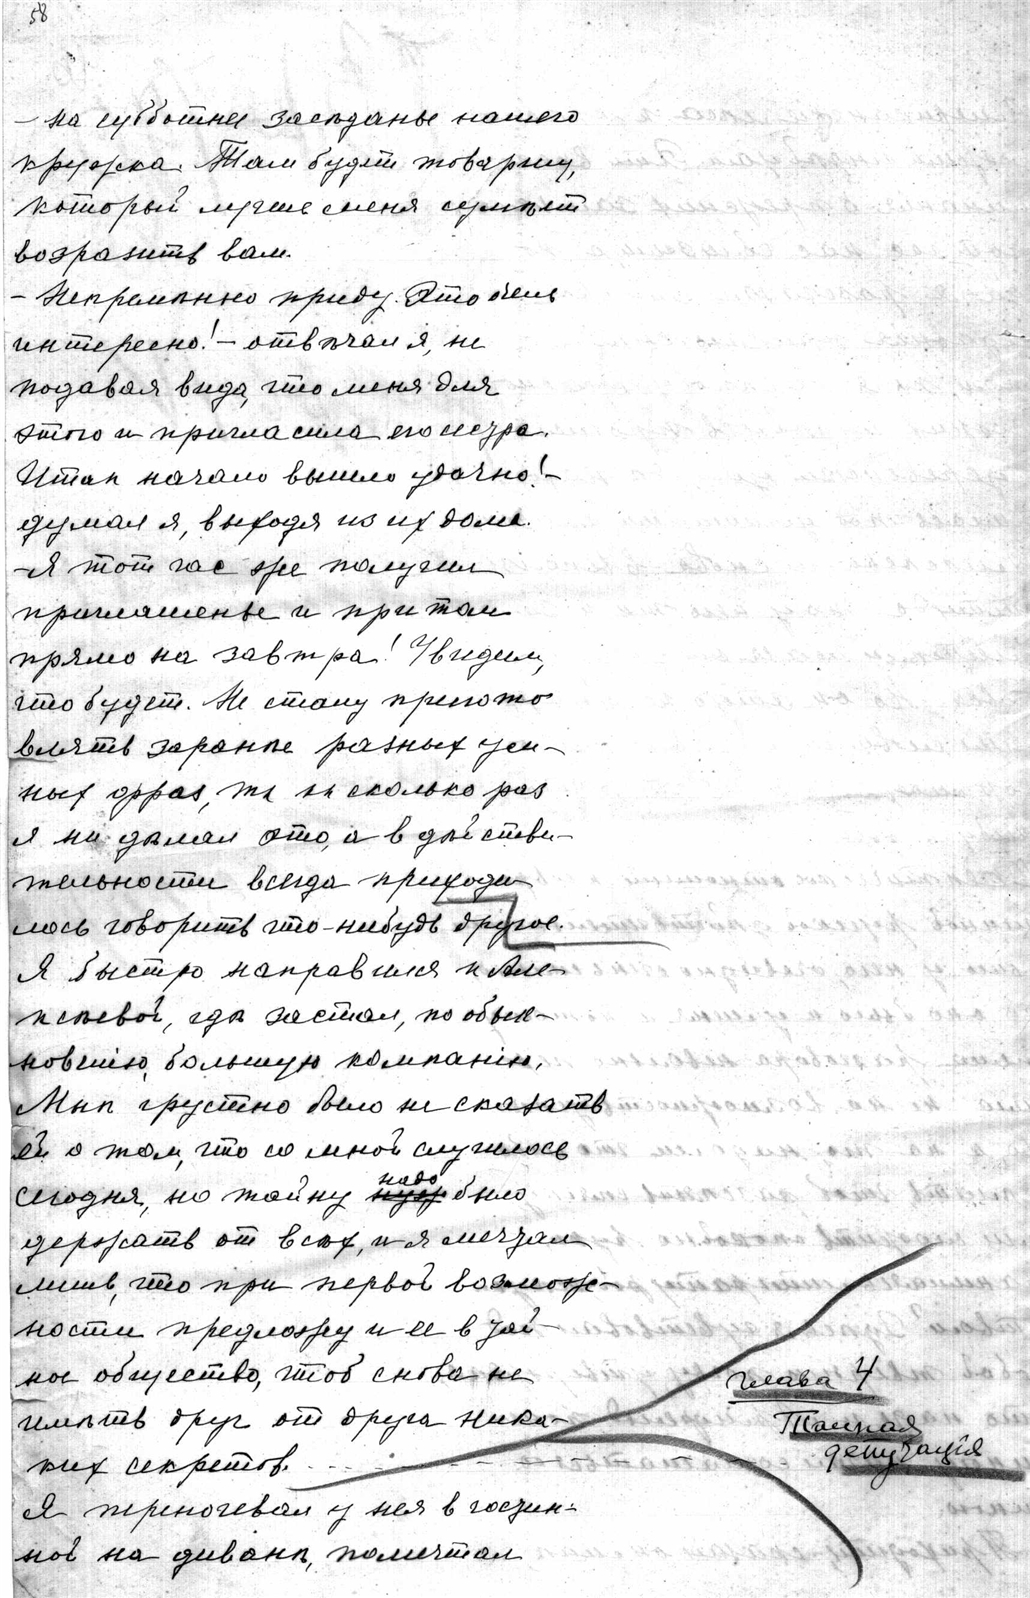 58
– на субботнее засѣданье нашего
кружка. Там будет товарищ,
который лучше меня сумѣет
возразить вам.
– Непремѣнно приду. Это очень
интересно! – отвѣчал я, не
подавая вида, что меня для
этого и пригласила его сестра.
Итак начало вышло удачно! –
думал я, выходя из их дома.
– Я тот час же получил
приглашенье и притом
прямо на завтра! Увидим,
что будет. Не стану пригото
влять заранѣе разных ум-
ных фраз, т. к. нѣсколько раз
я ни дѣлал это, а в дѣйстви-
тельности всегда приходи-
лось говорить что-нибудь другое.
Я быстро направился к Але-
ксѣевой, гдѣ застал, по обык-
новенію, большую компанію.
Мнѣ грустно было не сказать
ей о том, что со мной случилось
сегодня, но тайну надо было
держать от всѣх, и я мечтал
лишь, что при первой возмож-
ности предложу и ее в тай-
ное общество, чтоб снова не
имѣть друг от друга ника-
ких секретов.
Глава 4
Тайная
депутація
Я переночевал у нея в гостин-
ной на диванѣ, помечтал